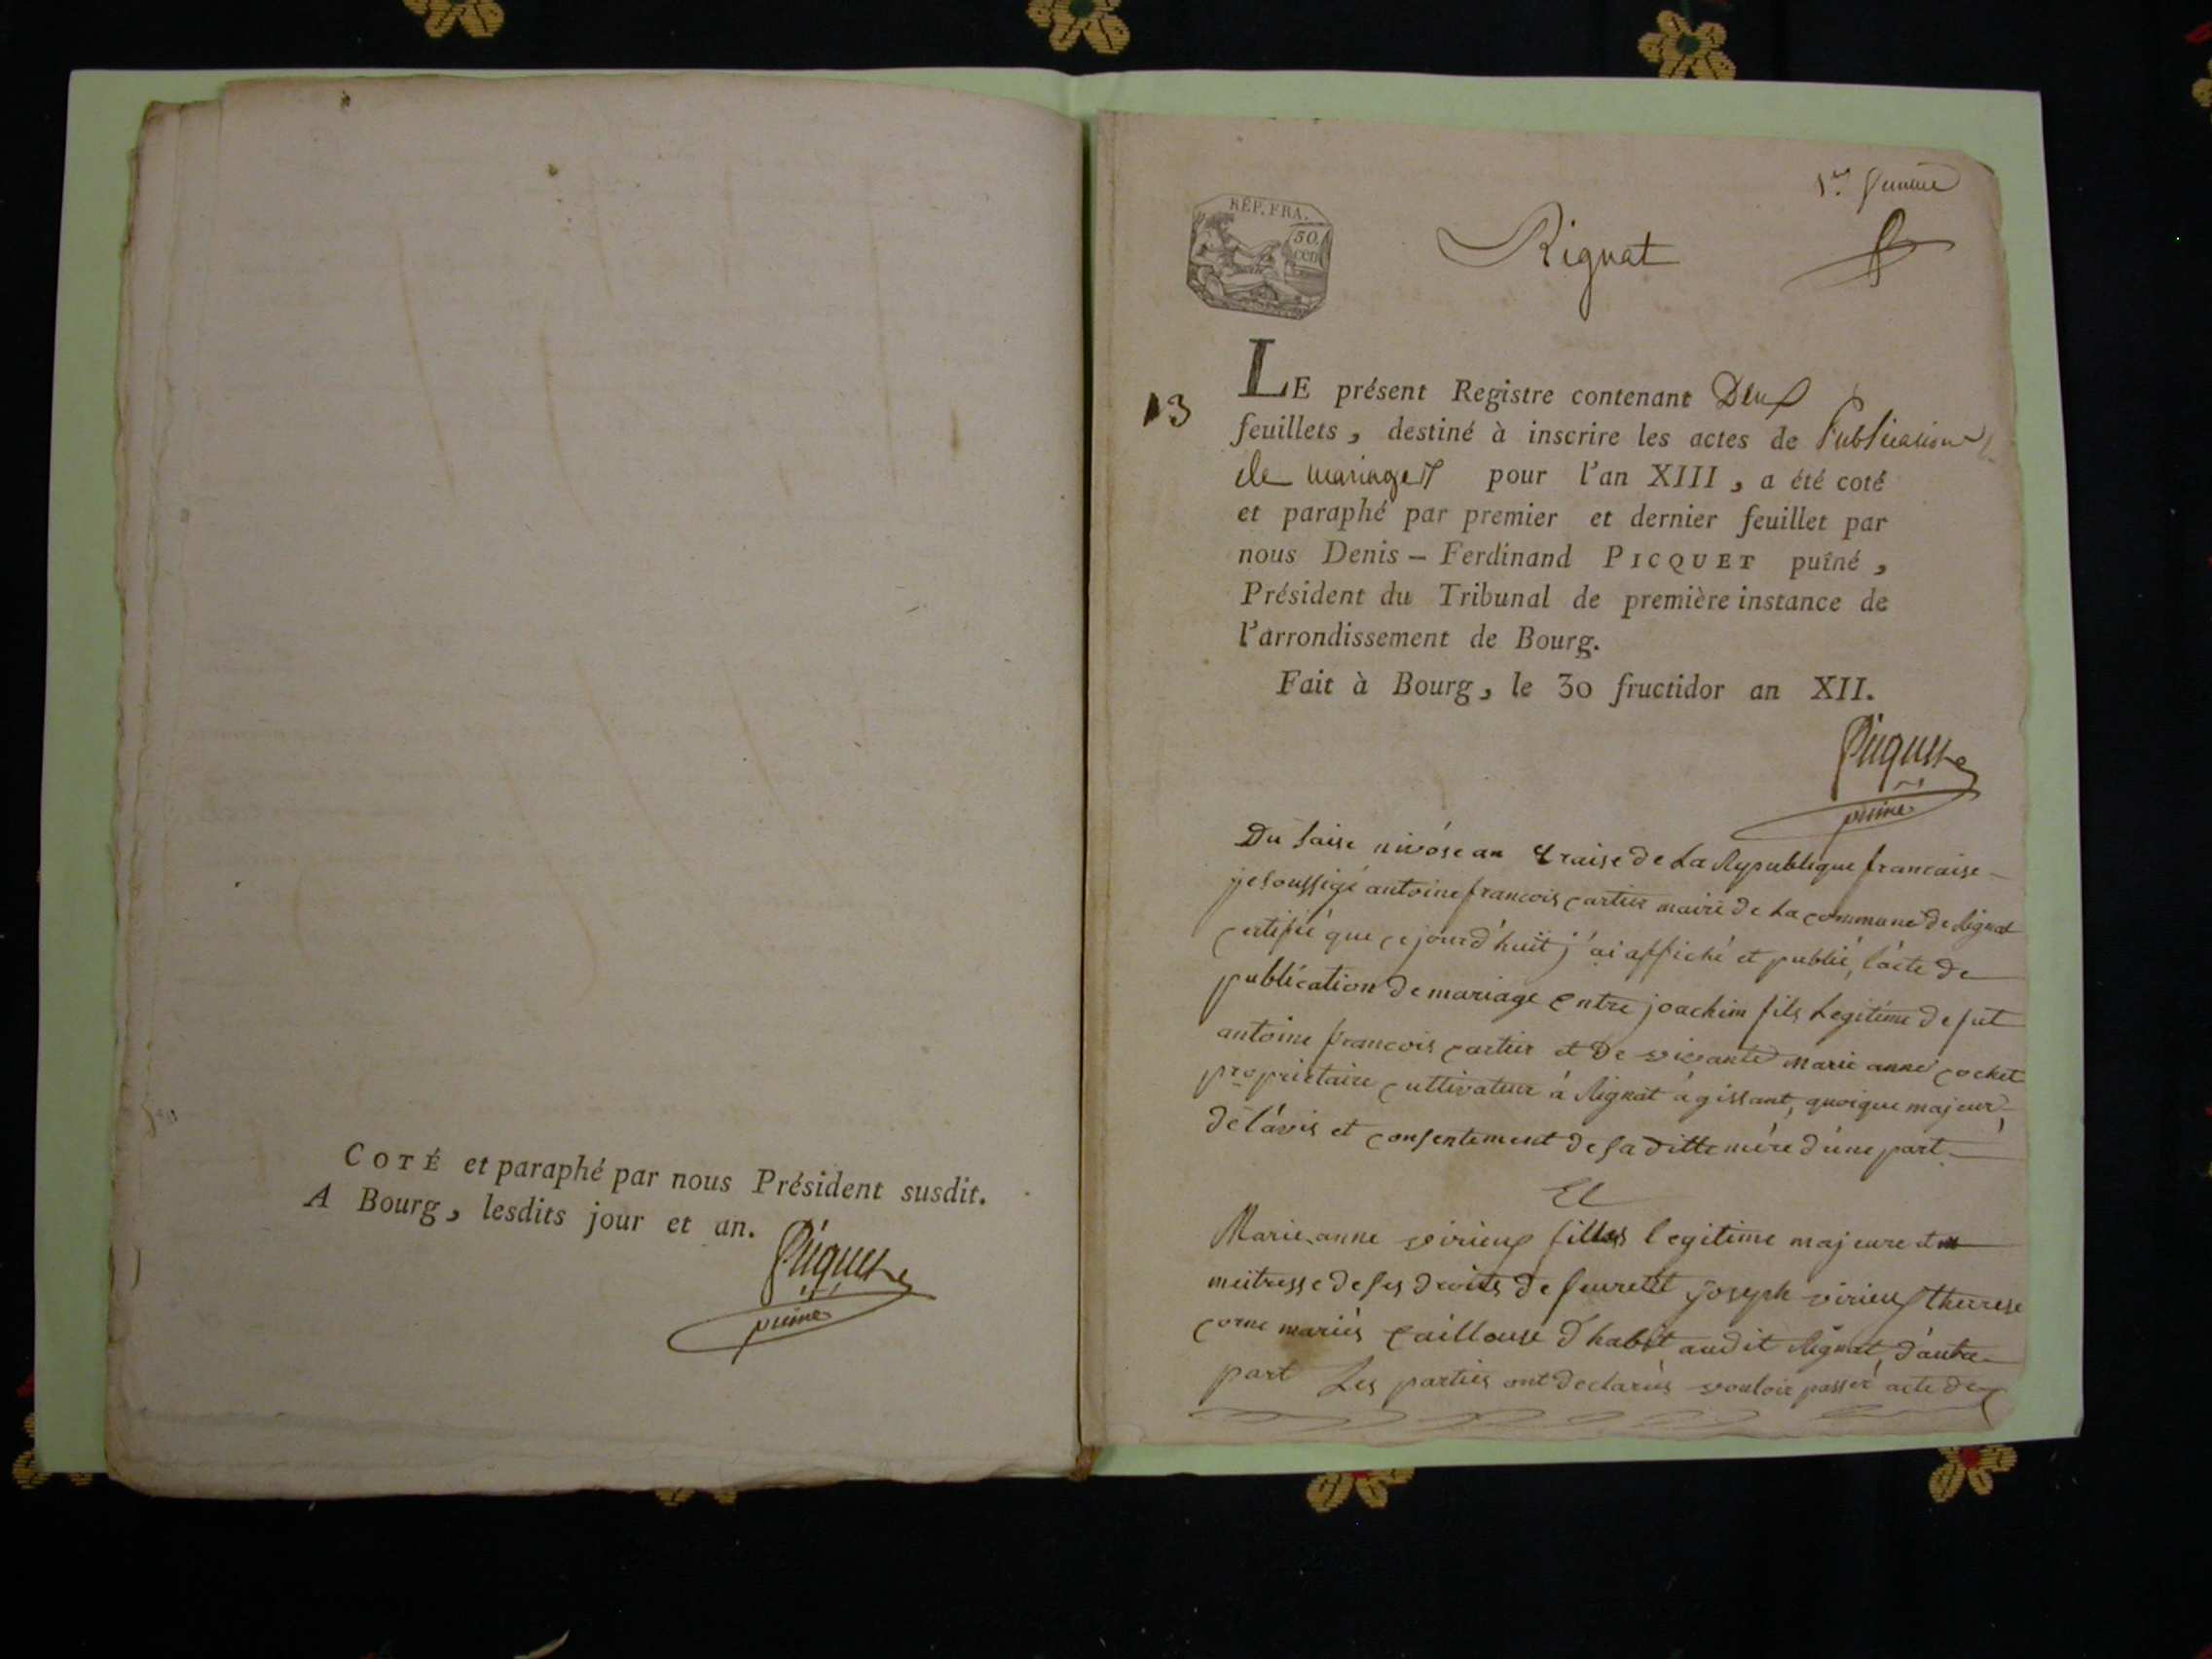 COTÉ et paraphé par nous Président susdit.
A Bourg, lesdits jour et an.
Picquet
puiné
RÉP. FRA.
50.
cen
Rignat
13
LE présent Registre contenant Deux
feuillets, destiné à inscrire les actes de Publications
de mariages pour l'an XIII, a été coté
et paraphé par premier et dernier feuillet par
nous Denis – Ferdinand PICQUET puîné,
Président du Tribunal de première instance de
l'arrondissement de Bourg.
Fait à Bourg, le 30 fructidor an XII.
Picquet
puiné
Du saise nivôse an traise de La Republique francaise
je soussigé antoine francois cartier maire de La commune de Rignat
certifié que ce jourd'huit j'ai affiché et publié, l'acte de
publication de mariage entre joachim fils Legitime de fut
antoine francois cartier et de vivante marie anne cochet
propriétaire cultivateur à Rignat agissant, quoique majeur,
de l'avis et consentement de sa ditte mère d'une part
Et
Marie anne virieux filles legitime majeure et
meitresse de ses droits de joseph virieux therese
corne mariés d'habit audit Rignat, d'autre
part Les parties ont declarés vouloir passer acte de